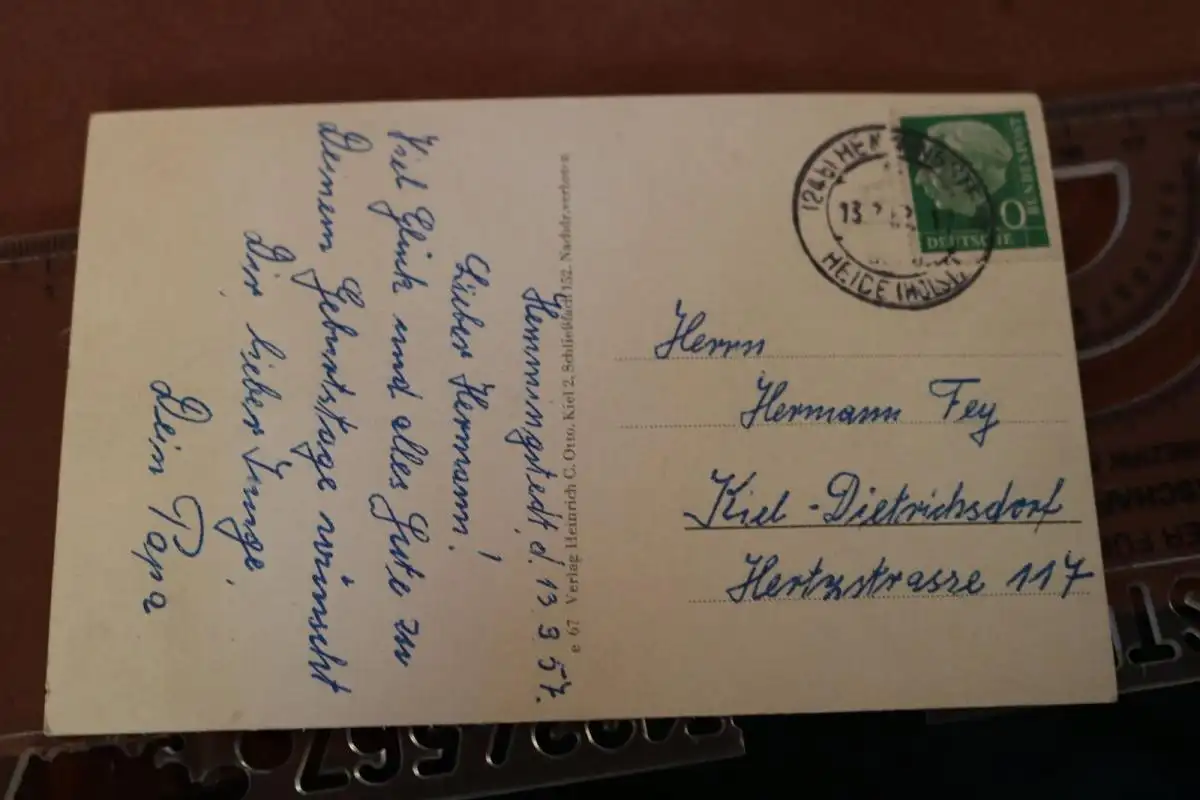 Hemmingstedt, d. 13 3 57.
Lieber Hermann!
Viel Glück und alles Gute zu
Deinem Geburtstage wünscht
Dir, lieber Junge,
Dein Papa
e 67 Verlag Heinrich C. Otto, Kiel 2, Schließfach 152. Nachdr. verboten
DEUTSCHE
BUNDESPOST
(24b)
HEIDE (HOLST.)
13
Herrn
Hermann Fey
Kiel-Dietrichsdorf
Hertzstrasse 117